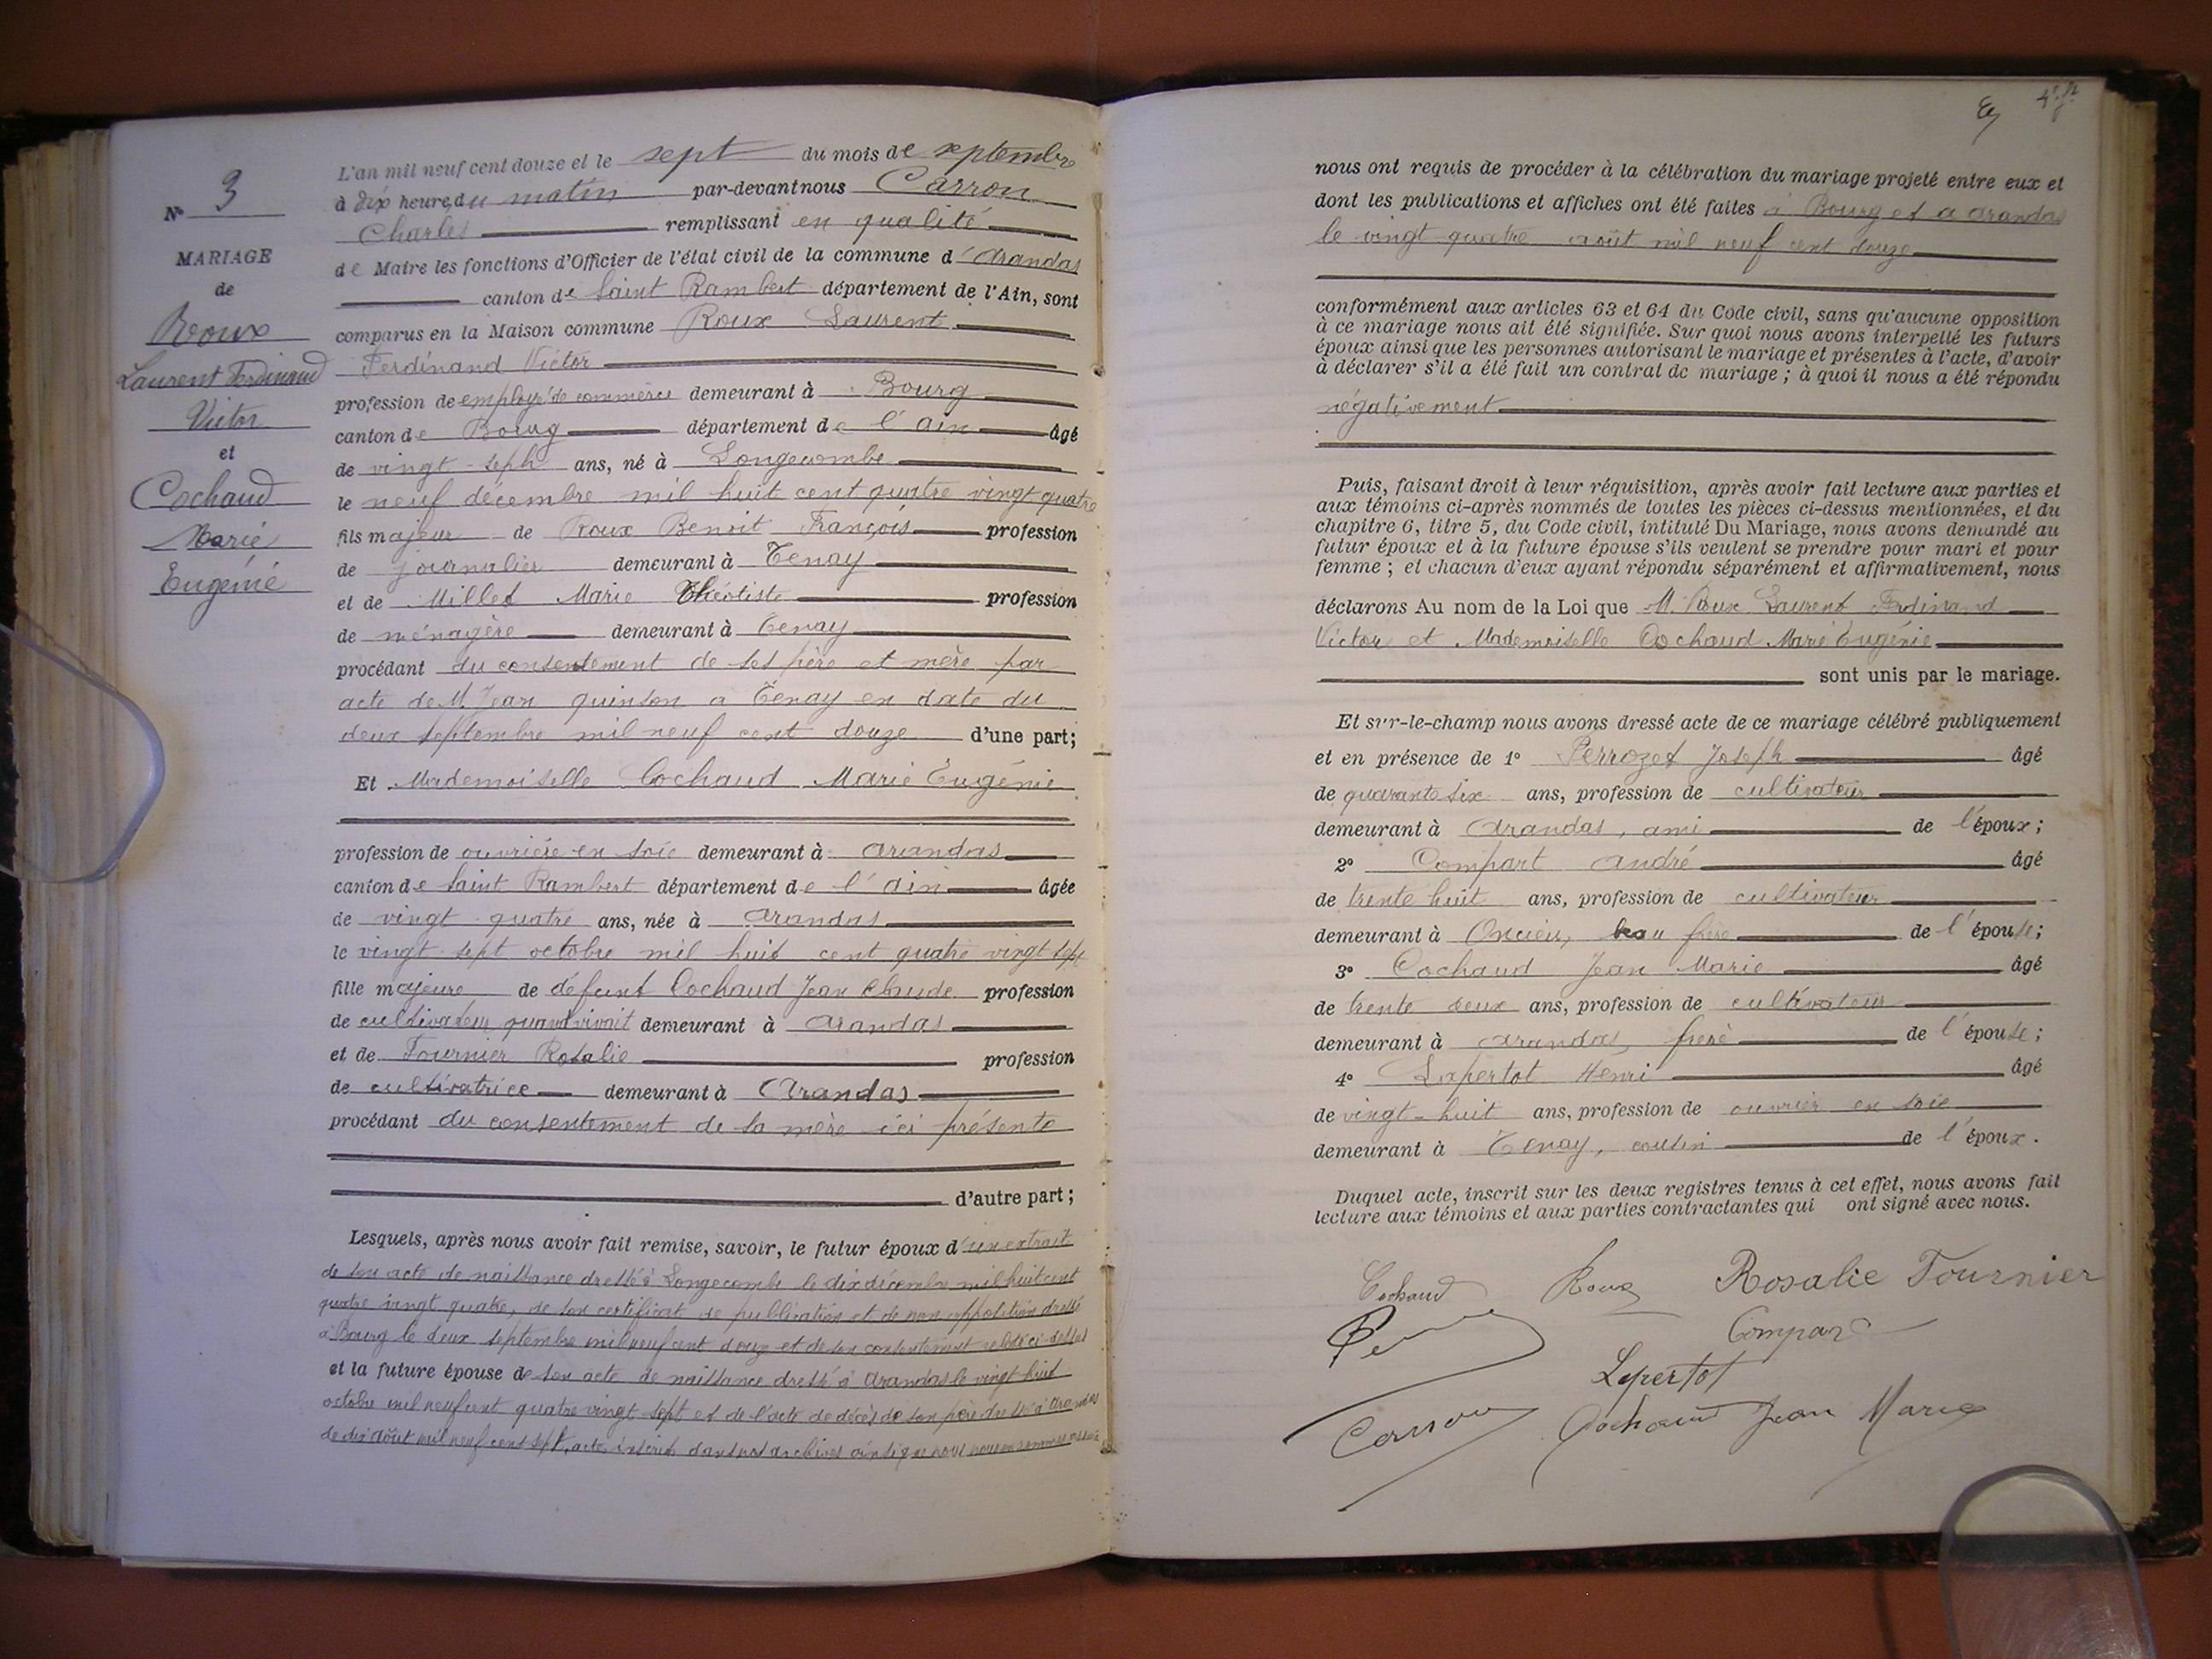 N° 3
MARIAGE
de
Roux
Laurent Ferdinand
Victor
et
Cochaud
Marie
Eugénie
L'an mil neuf cent douze et le sept du mois de septembre
à dix heures du matin par-devant nous Carron
Charles remplissant en qualité
de Maire les fonctions d'Officier de l'état civil de la commune d'Arandas
canton de Saint Rambert département de l'Ain, sont
comparus en la Maison commune Roux Laurent
Ferdinand Victor
profession de employé de commerce demeurant à Bourg
canton de Bourg département de l'Ain âgé
de vingt-sept ans, né à Longecombe
le neuf décembre mil huit cent quatre vingt quatre
fils majeur de Roux Benoit François profession
de journalier demeurant à Tenay
et de Millet Marie Théotiste profession
de ménagère demeurant à Tenay
procédant du consentement de ses père et mère par
acte de M. Jean quinson a Tenay en date du
deux septembre mil neuf cent douze d'une part;
Et Mademoiselle Cochaud Marie Eugénie
profession de ouvrière en soie demeurant à Arandas
canton de Saint Rambert département de l'ain âgée
de vingt-quatre ans, née à Arandas
le vingt-sept octobre mil huit cent quatre vingt sept
fille majeure de défunt Cochaud Jean Claude profession
de cultivateur quand vivait demeurant à Arandas
et de Fournier Rosalie profession
de cultivatrice demeurant à Arandas
procédant du consentement de sa mère ici présente
d'autre part;
Lesquels, après nous avoir fait remise, savoir, le futur époux d'un extrait
de son acte de naissance dressé à Longecombe le dix décembre mil huit cent
quatre vingt quatre, de son certificat de publication et de non opposition dressé
à Bourg le deux septembre mil neuf cent douze et de son consentement relaté ci-dessus
et la future épouse de son acte de naissance dressé à Arandas le vingt huit
octobre mil neuf cent quatre vingt sept et de l'acte de décès de son père dressé à Arandas
de dix août mil neuf cent sept, acte inscrit dans nos archives ainsi que nous nous en sommes assuré
nous ont requis de procéder à la célébration du mariage projeté entre eux et
dont les publications et affiches ont été faites à Bourg et a Arandas
le vingt quatre août mil neuf cent douze
conformément aux articles 63 et 64 du Code civil, sans qu'aucune opposition
à ce mariage nous ait été signifiée. Sur quoi nous avons interpellé les futurs
époux ainsi que les personnes autorisant le mariage et présentes à l'acte, d'avoir
à déclarer s'il a été fait un contrat de mariage; à quoi il nous a été répondu
négativement
Puis, faisant droit à leur réquisition, après avoir fait lecture aux parties et
aux témoins ci-après nommés de toutes les pièces ci-dessus mentionnées, et du
chapitre 6, titre 5, du Code civil, intitulé Du Mariage, nous avons demandé au
futur époux et à la future épouse s'ils veulent se prendre pour mari et pour
femme; et chacun d'eux ayant répondu séparément et affirmativement, nous
déclarons Au nom de la Loi que M. Roux Laurent Ferdinand
Victor et Mademoiselle Cochaud Marie Eugénie
sont unis par le mariage.
Et sur-le-champ nous avons dressé acte de ce mariage célébré publiquement
et en présence de 1° Perrozet Joseph âgé
de quarante six ans, profession de cultivateur
demeurant à Arandas, ami de l'époux;
2° Compart André âgé
de trente huit ans, profession de cultivateur
demeurant à Oncieu, beau frère de l'épouse;
3° Cochaud Jean Marie âgé
de trente deux ans, profession de cultivateur
demeurant à Arandas, frère de l'épouse;
4° Lepertot Henri âgé
de vingt-huit ans, profession de ouvrier en soie
demeurant à Tenay, cousin de l'époux.
Duquel acte, inscrit sur les deux registres tenus à cet effet, nous avons fait
lecture aux témoins et aux parties contractantes qui ont signé avec nous.
Cochaud Roux Rosalie Fournier
Compart
Lepertot
Carron Cochaud Jean Marie